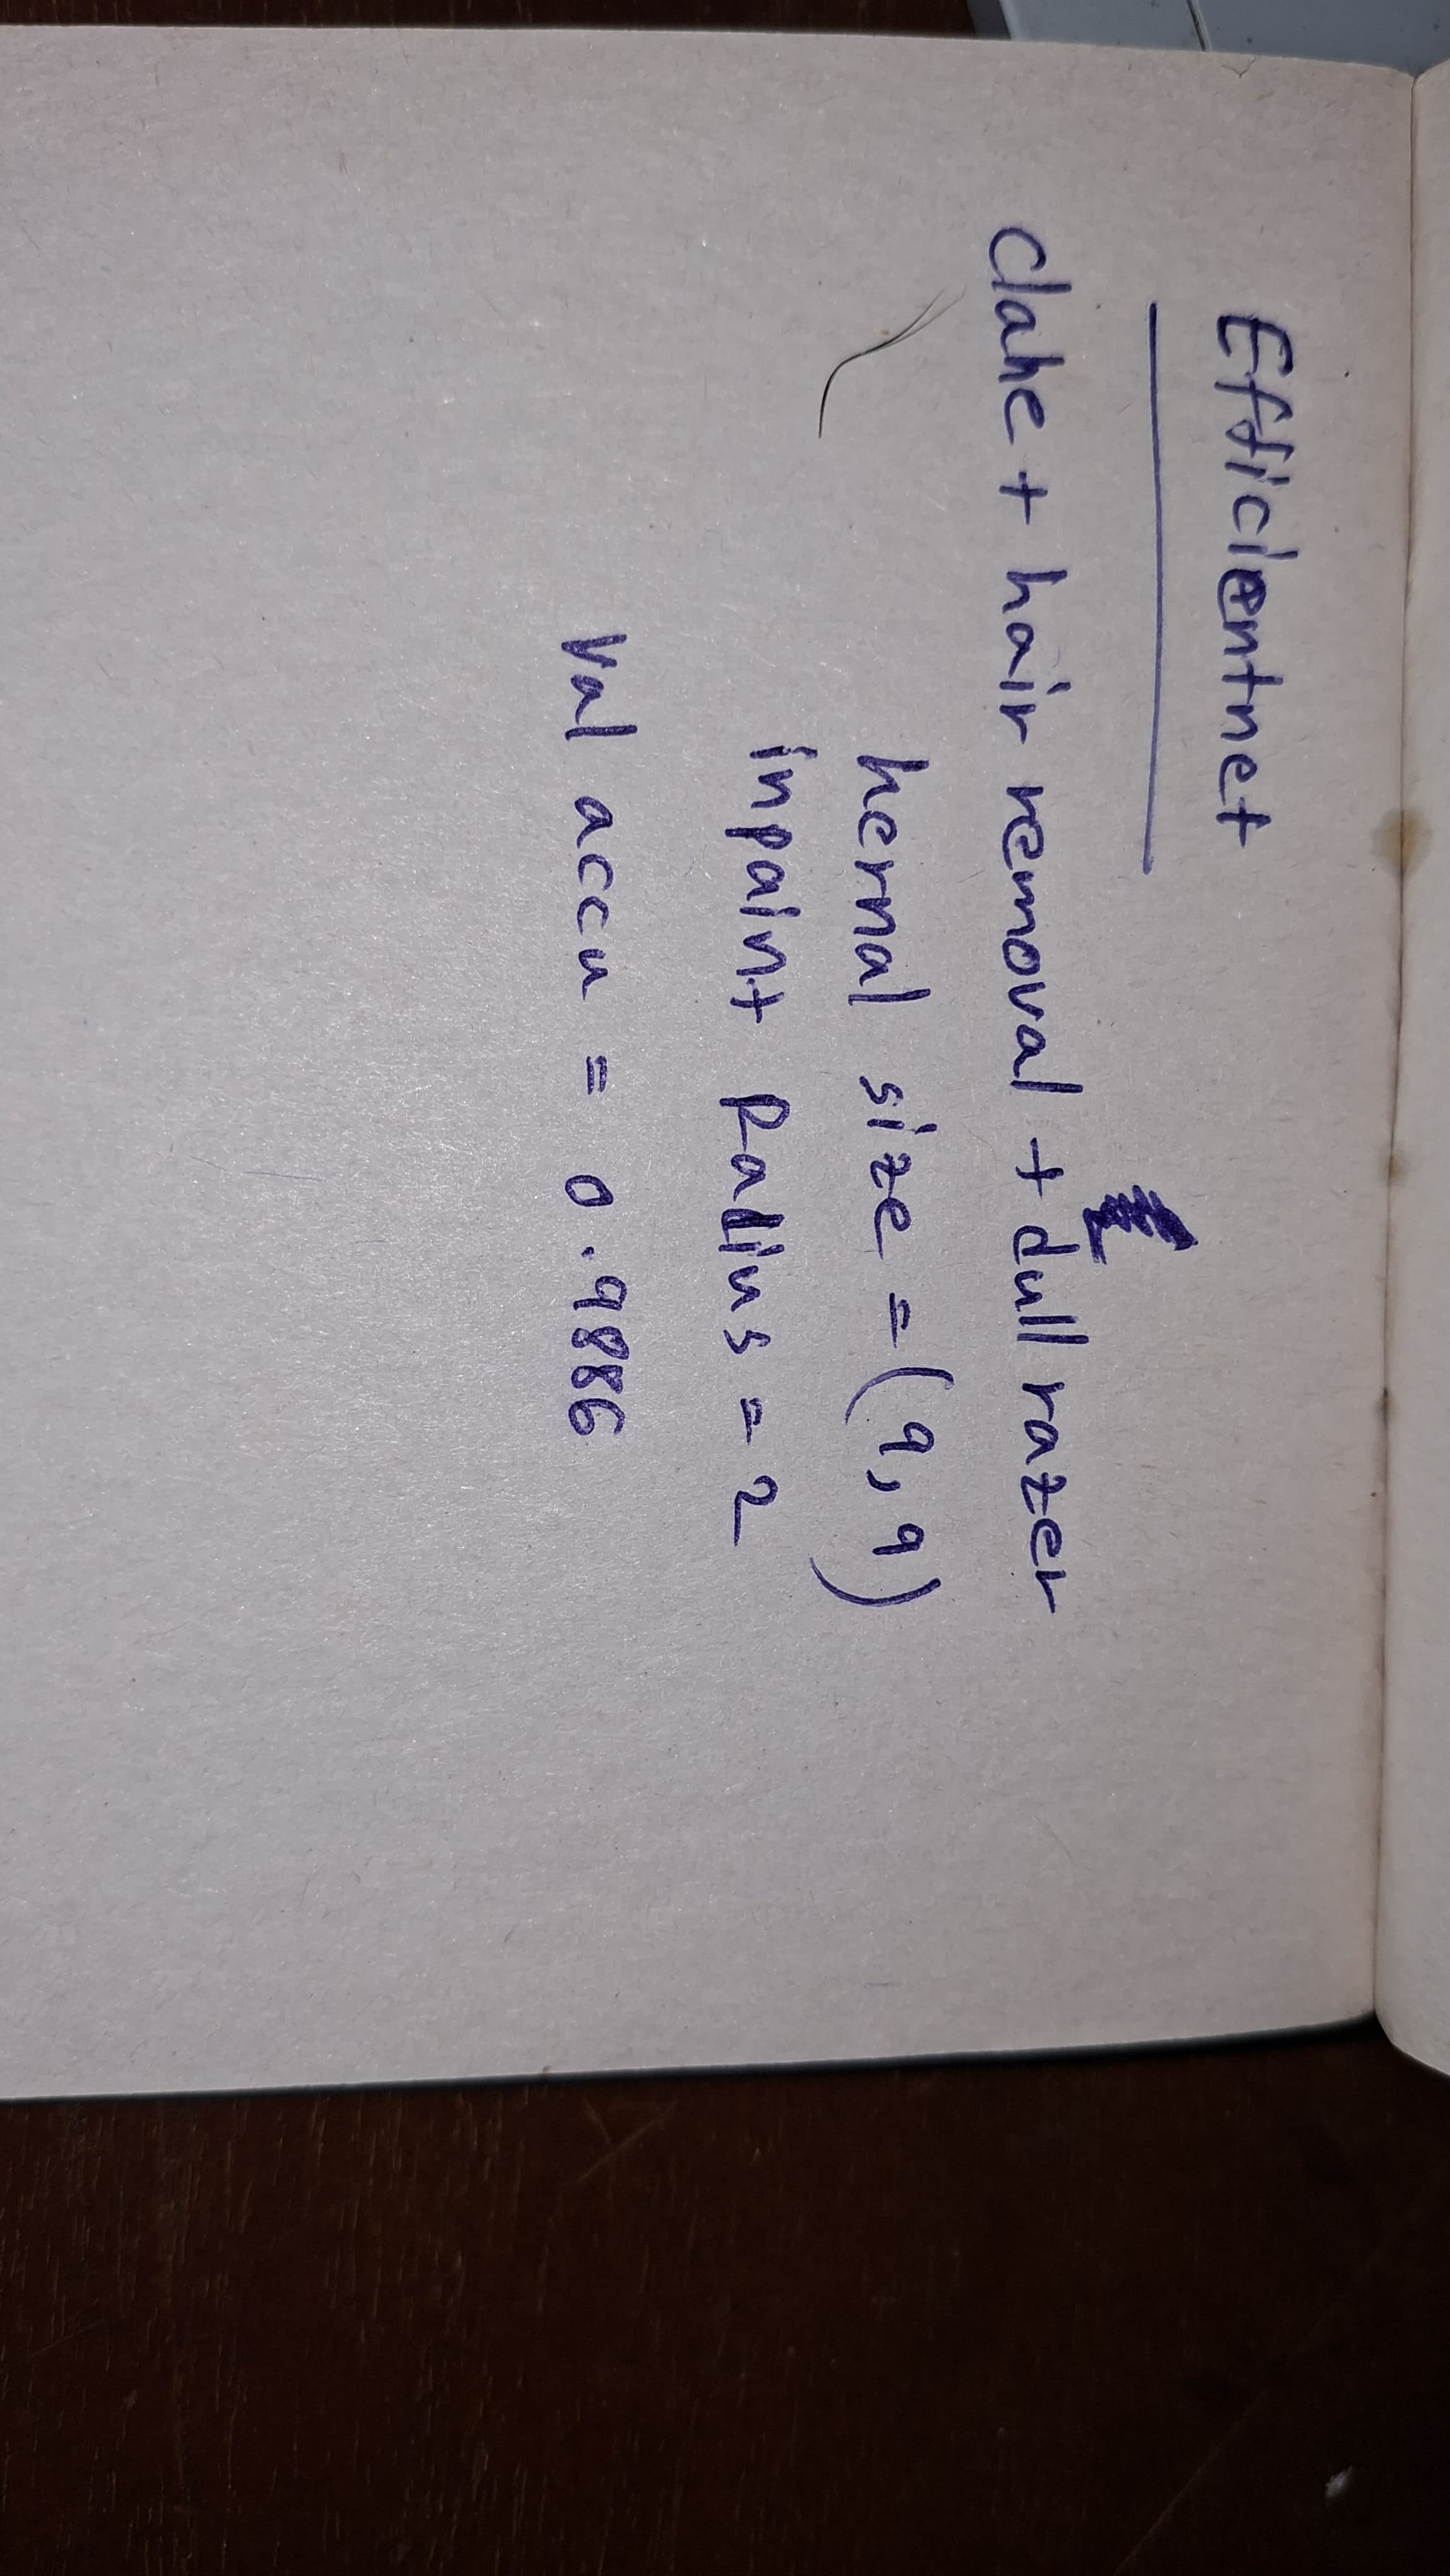 Efficientnet
clahe + hair removal + dull razer
kernal size = (9,9)
inpaint Radius = 2
val accu = 0.9886